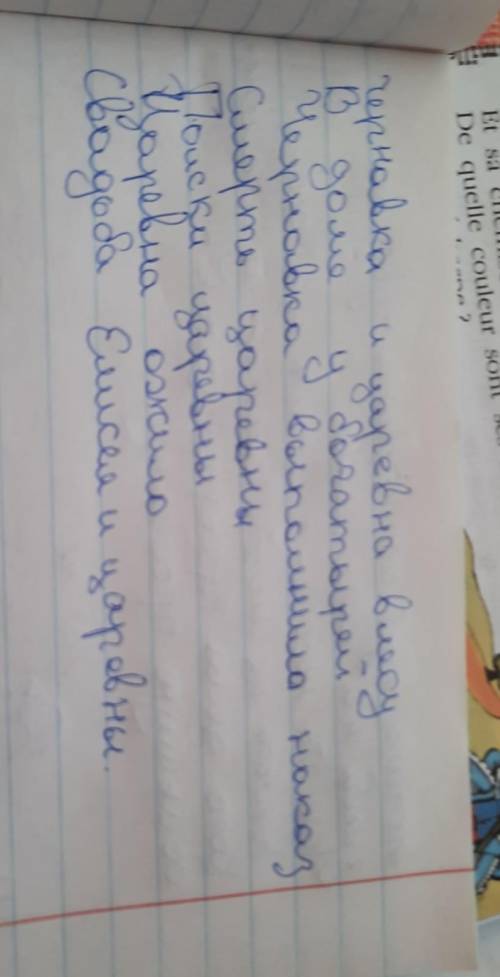 Чернавка и царевна в лесу
В доме у богатырей
Чернавка выполнила наказ
Смерть царевны
Поиски царевны
Царевна ожила
Свадьба Елисея и царевны.
Et sa
De quelle couleur sont